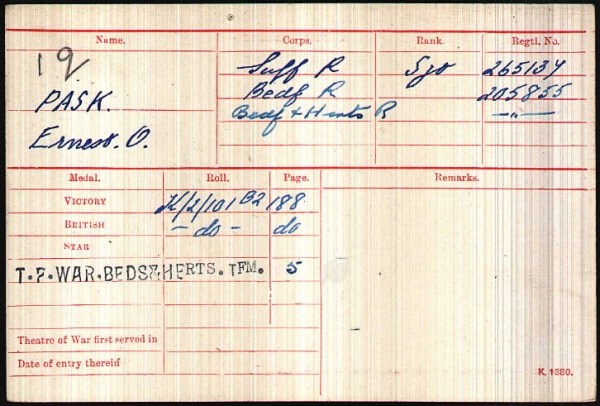 Name. Corps. Rank. Regtl. No.
19
Suff R Sjt 265134
PASK. Bedf R 205855
Ernest. O. Bedf & Herts R —"—
Medal. Roll. Page. Remarks.
VICTORY K/2/101 B2 188
BRITISH - do - do
STAR
T.F.WAR.BEDS&HERTS.TFM. 5
Theatre of War first served in
Date of entry therein
K. 1380.